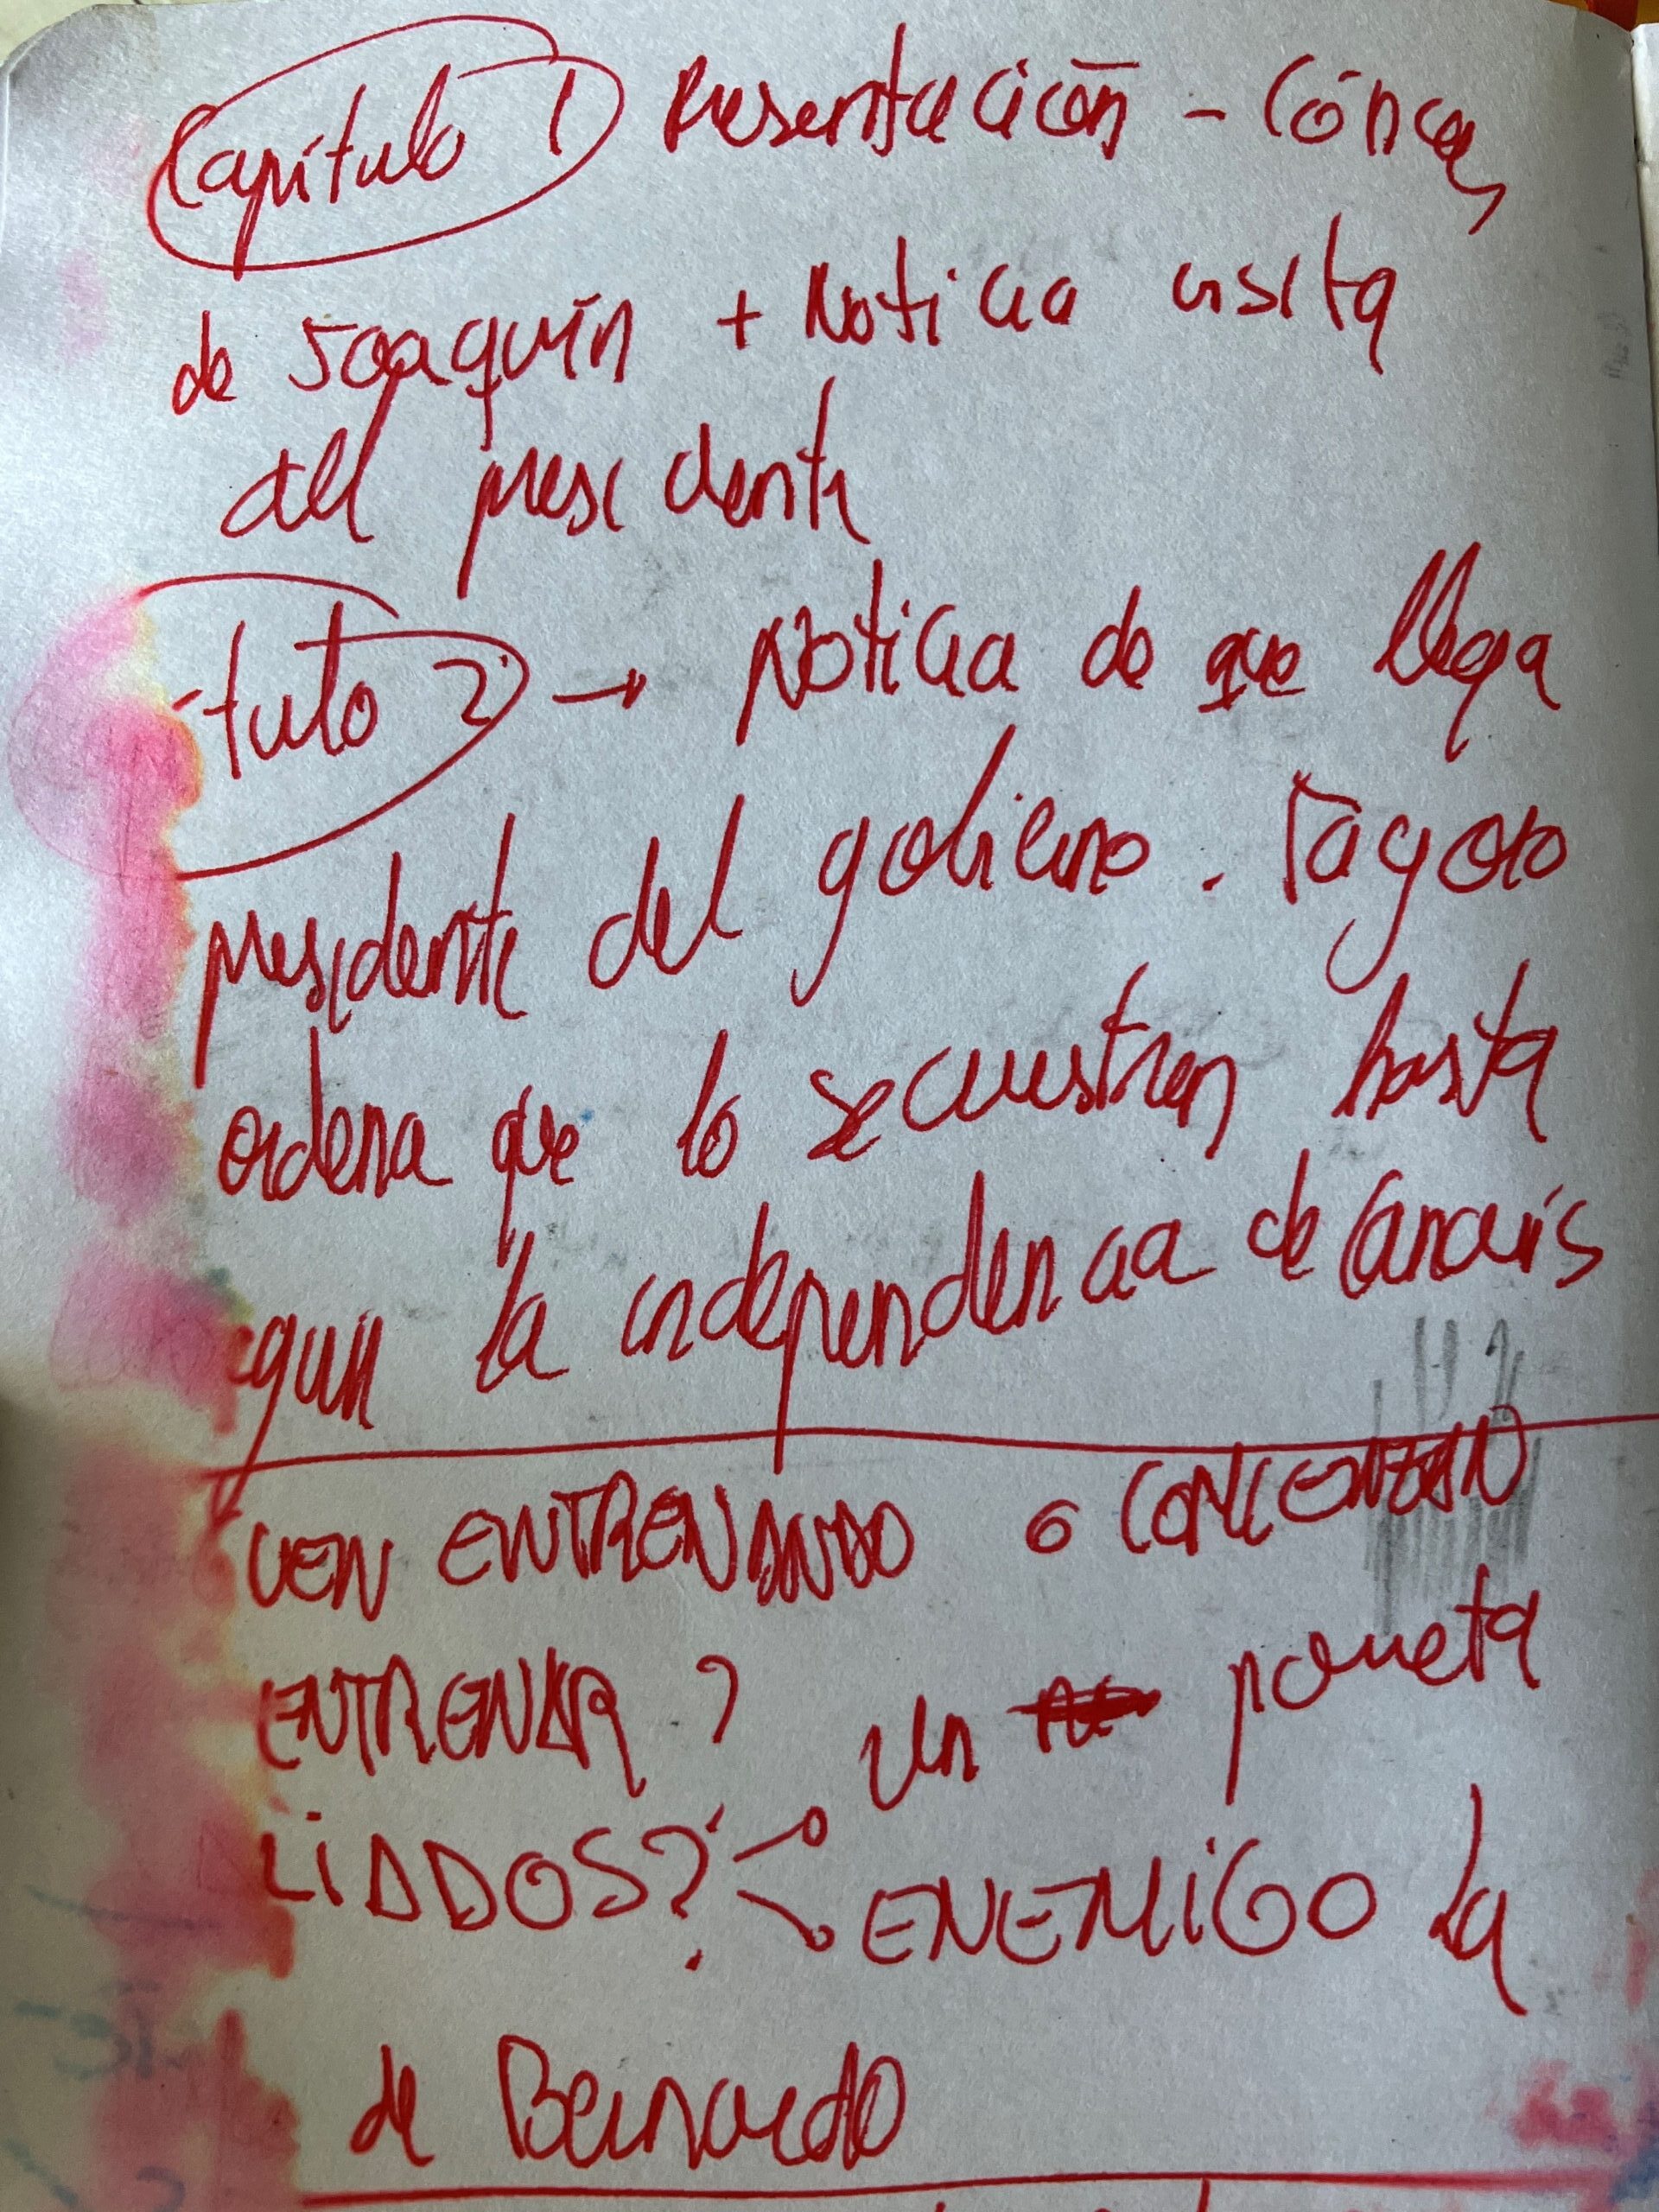 Capítulo 1 Presentación - Cónica,
de Joaquín + Noticia visita
del presidente
tulo 2 → Noticia de que llega
presidente del gobierno. Tagoro
ordena que lo secuestren hasta
la independencia de Canarias
VEN ENTRENANDO o COMIENZAN
ENTRENAR? Un poueta
LIADOS? ENEMIGO la
de Bernardo